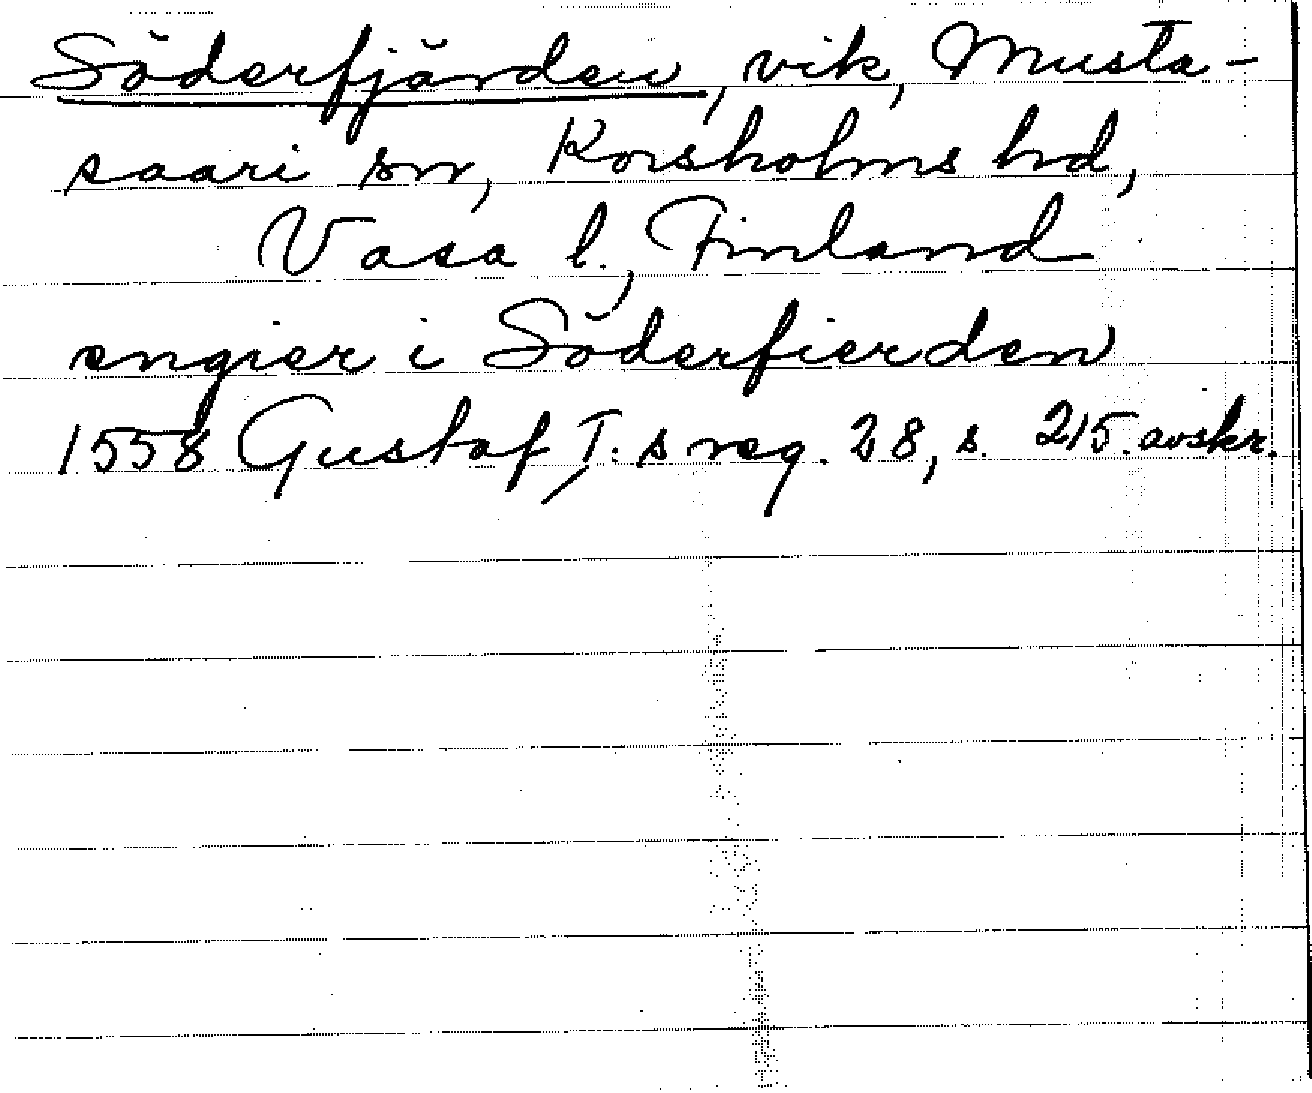 Söderfjärden, vik, Musta-
saari sn, Korsholms hd,
Vasa l., Finland
engier i Söderfierden
1558 Gustaf I:s reg. 28, s. 215. avskr.